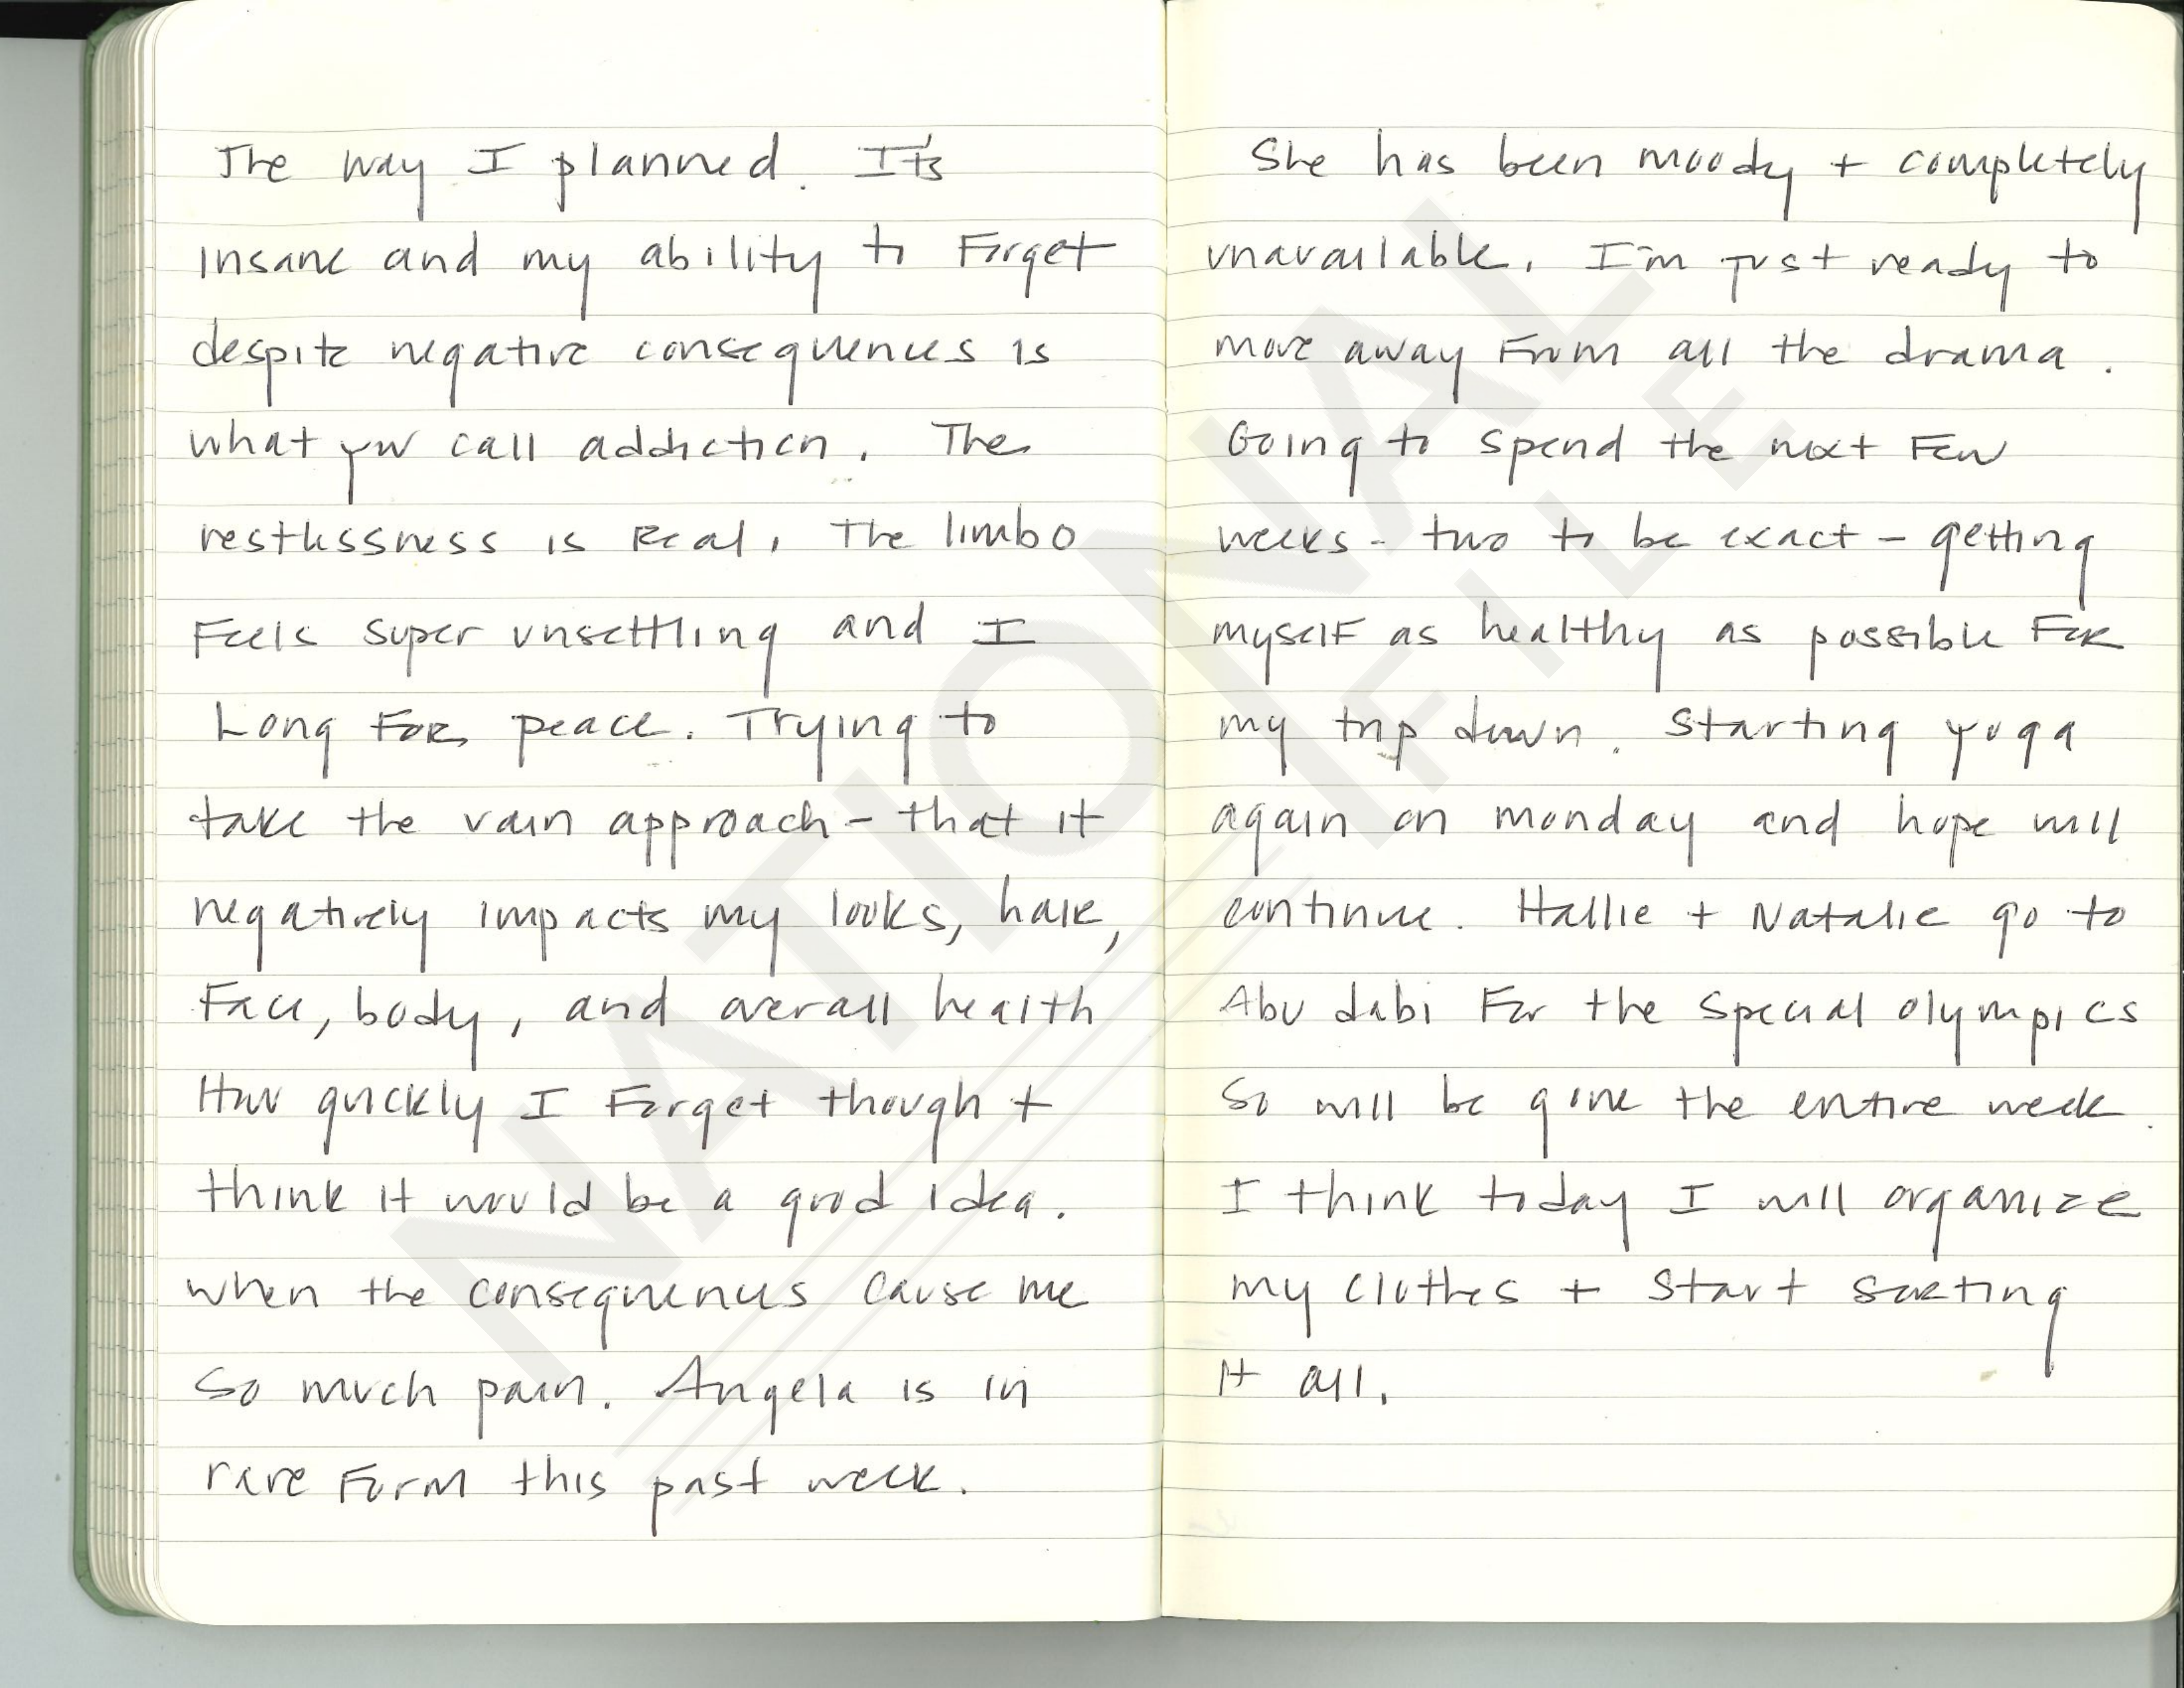 The way I planned. It's
insane and my ability to forget
despite negative consequences is
what you call addiction. The
restlessness is Real. The limbo
Feels super unsettling and I
Long FOR peace. Trying to
take the vain approach - that it
negatively impacts my looks, hair,
Face, body, and overall health
How quickly I Forget though +
think it would be a good idea.
when the consequences cause me
so much pain. Angela is in
rare Form this past week.
She has been moody + completely
unavailable. I'm just ready to
move away From all the drama.
Going to spend the next Few
weeks - two to be exact - getting
myself as healthy as possible FOR
my trip down. Starting yoga
again on monday and hope will
continue. Hallie + Natalie go to
Abu dabi For the special olympics
so will be gone the entire week.
I think today I will organize
my clothes + start sorting
it all.
NATIONAL
FILE